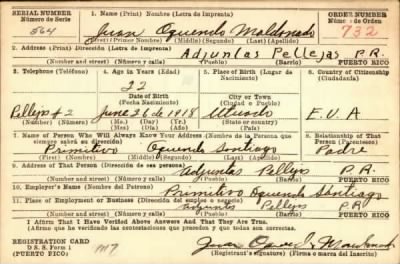 SERIAL NUMBER 1. Name (Print) Nombre (Letra de Imprenta) ORDER NUMBER
Número de Serie Número de Orden
564 Juan Oquendo Maldonado 732
(First) Primer Nombre (Middle) Segundo (Last) (Apellido)
2. Address (Print) Dirección (Letra de Imprenta)
Adjuntas Pellejas P.R.
(Number and street) (Número y calle) (Town) (Pueblo) PUERTO RICO
3. Telephone (Teléfono) 4. Age in Years (Edad) 5. Place of Birth (Lugar de Nacimiento) 6. Country of Citizenship (Ciudadanía)
22
Date of Birth City or Town
Fecha Nacimiento (Ciudad o Pueblo)
Pellejas #2 June 26 de 1918 Utuado E.U.A
(Number) (Número) (Mo.) (Day) (Yr.) State or country
(Mes) (Día) (Año)
7. Name of Person Who Will Always Know Your Address (Nombre de la Persona que siempre sabrá su dirección) 8. Relationship of That Person (Parentesco)
Primitivo Oquendo Santiago Padre
(First) Primer Nombre (Middle) Segundo (Last) Apellido
9. Address of That Person (Dirección de esa persona)
Adjuntas Pellejas P.R.
(Number and street) (Número y calle) (Town) (Pueblo) PUERTO RICO
10. Employer's Name (Nombre del Patrono)
Primitivo Oquendo Santiago
11. Place of Employment or Business (Dirección del empleo o negocio)
Adjuntas Pellejas P.R.
(Number and street) (Número y calle) (Town) (Pueblo) PUERTO RICO
I Affirm That I Have Verified Above Answers And That They Are True.
(Afirmo que he verificado las contestaciones que preceden y que son ciertas)
REGISTRATION CARD
D. S. S. Form 1
(PUERTO RICO)
Juan Oquendo Maldonado
(Registrant's signature) (Firma o marca del Inscrito)